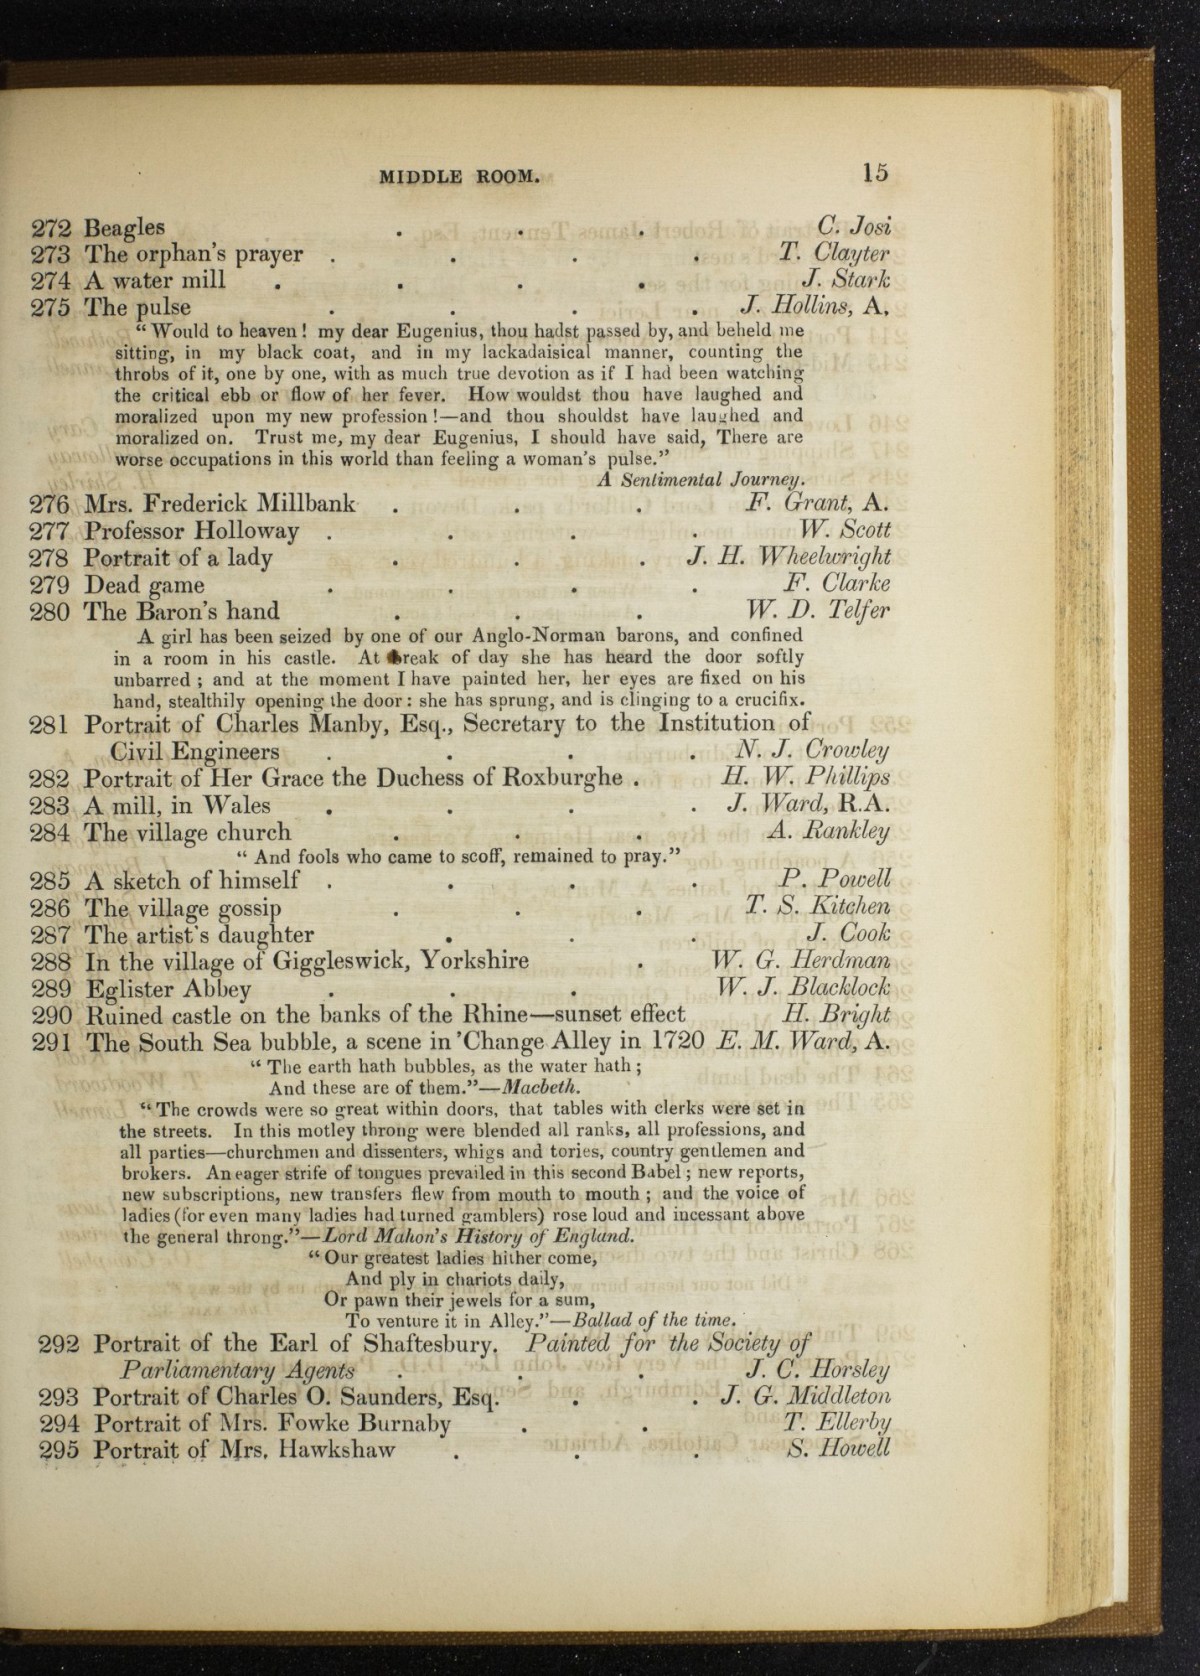 MIDDLE ROOM. 15
272 Beagles . . . C. Josi
273 The orphan's prayer . . . . T. Clayter
274 A water mill . . . . J. Stark
275 The pulse . . . . J. Hollins, A.
“ Would to heaven ! my dear Eugenius, thou hadst passed by, and beheld me
sitting, in my black coat, and in my lackadaisical manner, counting the
throbs of it, one by one, with as much true devotion as if I had been watching
the critical ebb or flow of her fever. How wouldst thou have laughed and
moralized upon my new profession !—and thou shouldst have laughed and
moralized on. Trust me, my dear Eugenius, I should have said, There are
worse occupations in this world than feeling a woman's pulse.”
A Sentimental Journey.
276 Mrs. Frederick Millbank . . . F. Grant, A.
277 Professor Holloway . . . . W. Scott
278 Portrait of a lady . . . J. H. Wheelwright
279 Dead game . . . . F. Clarke
280 The Baron's hand . . . W. D. Telfer
A girl has been seized by one of our Anglo-Norman barons, and confined
in a room in his castle. At break of day she has heard the door softly
unbarred ; and at the moment I have painted her, her eyes are fixed on his
hand, stealthily opening the door : she has sprung, and is clinging to a crucifix.
281 Portrait of Charles Manby, Esq., Secretary to the Institution of
Civil Engineers . . . . N. J. Crowley
282 Portrait of Her Grace the Duchess of Roxburghe . H. W. Phillips
283 A mill, in Wales . . . . J. Ward, R.A.
284 The village church . . . A. Rankley
“ And fools who came to scoff, remained to pray.”
285 A sketch of himself . . . . P. Powell
286 The village gossip . . . T. S. Kitchen
287 The artist's daughter . . . J. Cook
288 In the village of Giggleswick, Yorkshire . W. G. Herdman
289 Eglister Abbey . . . W. J. Blacklock
290 Ruined castle on the banks of the Rhine—sunset effect H. Bright
291 The South Sea bubble, a scene in 'Change Alley in 1720 E. M. Ward, A.
“ The earth hath bubbles, as the water hath ;
And these are of them.”—Macbeth.
“ The crowds were so great within doors, that tables with clerks were set in
the streets. In this motley throng were blended all ranks, all professions, and
all parties—churchmen and dissenters, whigs and tories, country gentlemen and
brokers. An eager strife of tongues prevailed in this second Babel ; new reports,
new subscriptions, new transfers flew from mouth to mouth ; and the voice of
ladies (for even many ladies had turned gamblers) rose loud and incessant above
the general throng.”—Lord Mahon's History of England.
“ Our greatest ladies hither come,
And ply in chariots daily,
Or pawn their jewels for a sum,
To venture it in Alley.”—Ballad of the time.
292 Portrait of the Earl of Shaftesbury. Painted for the Society of
Parliamentary Agents . . . J. C. Horsley
293 Portrait of Charles O. Saunders, Esq. . . J. G. Middleton
294 Portrait of Mrs. Fowke Burnaby . . T. Ellerby
295 Portrait of Mrs. Hawkshaw . . . S. Howell